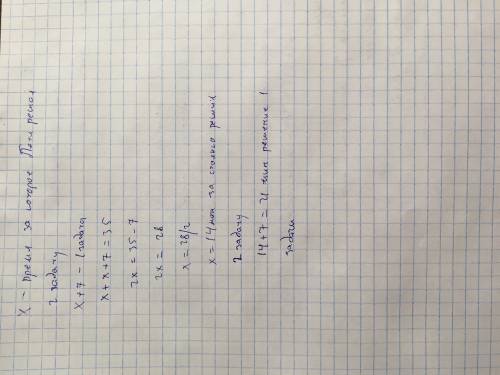 X - время за которое Петя решал
2 задачу
x+7 - 1 задача
x+x+7=35
2x=35-7
2x=28
x=28/2
x=14 мин за столько решил
2 задачу
14+7=21 мин решение 1
задачи